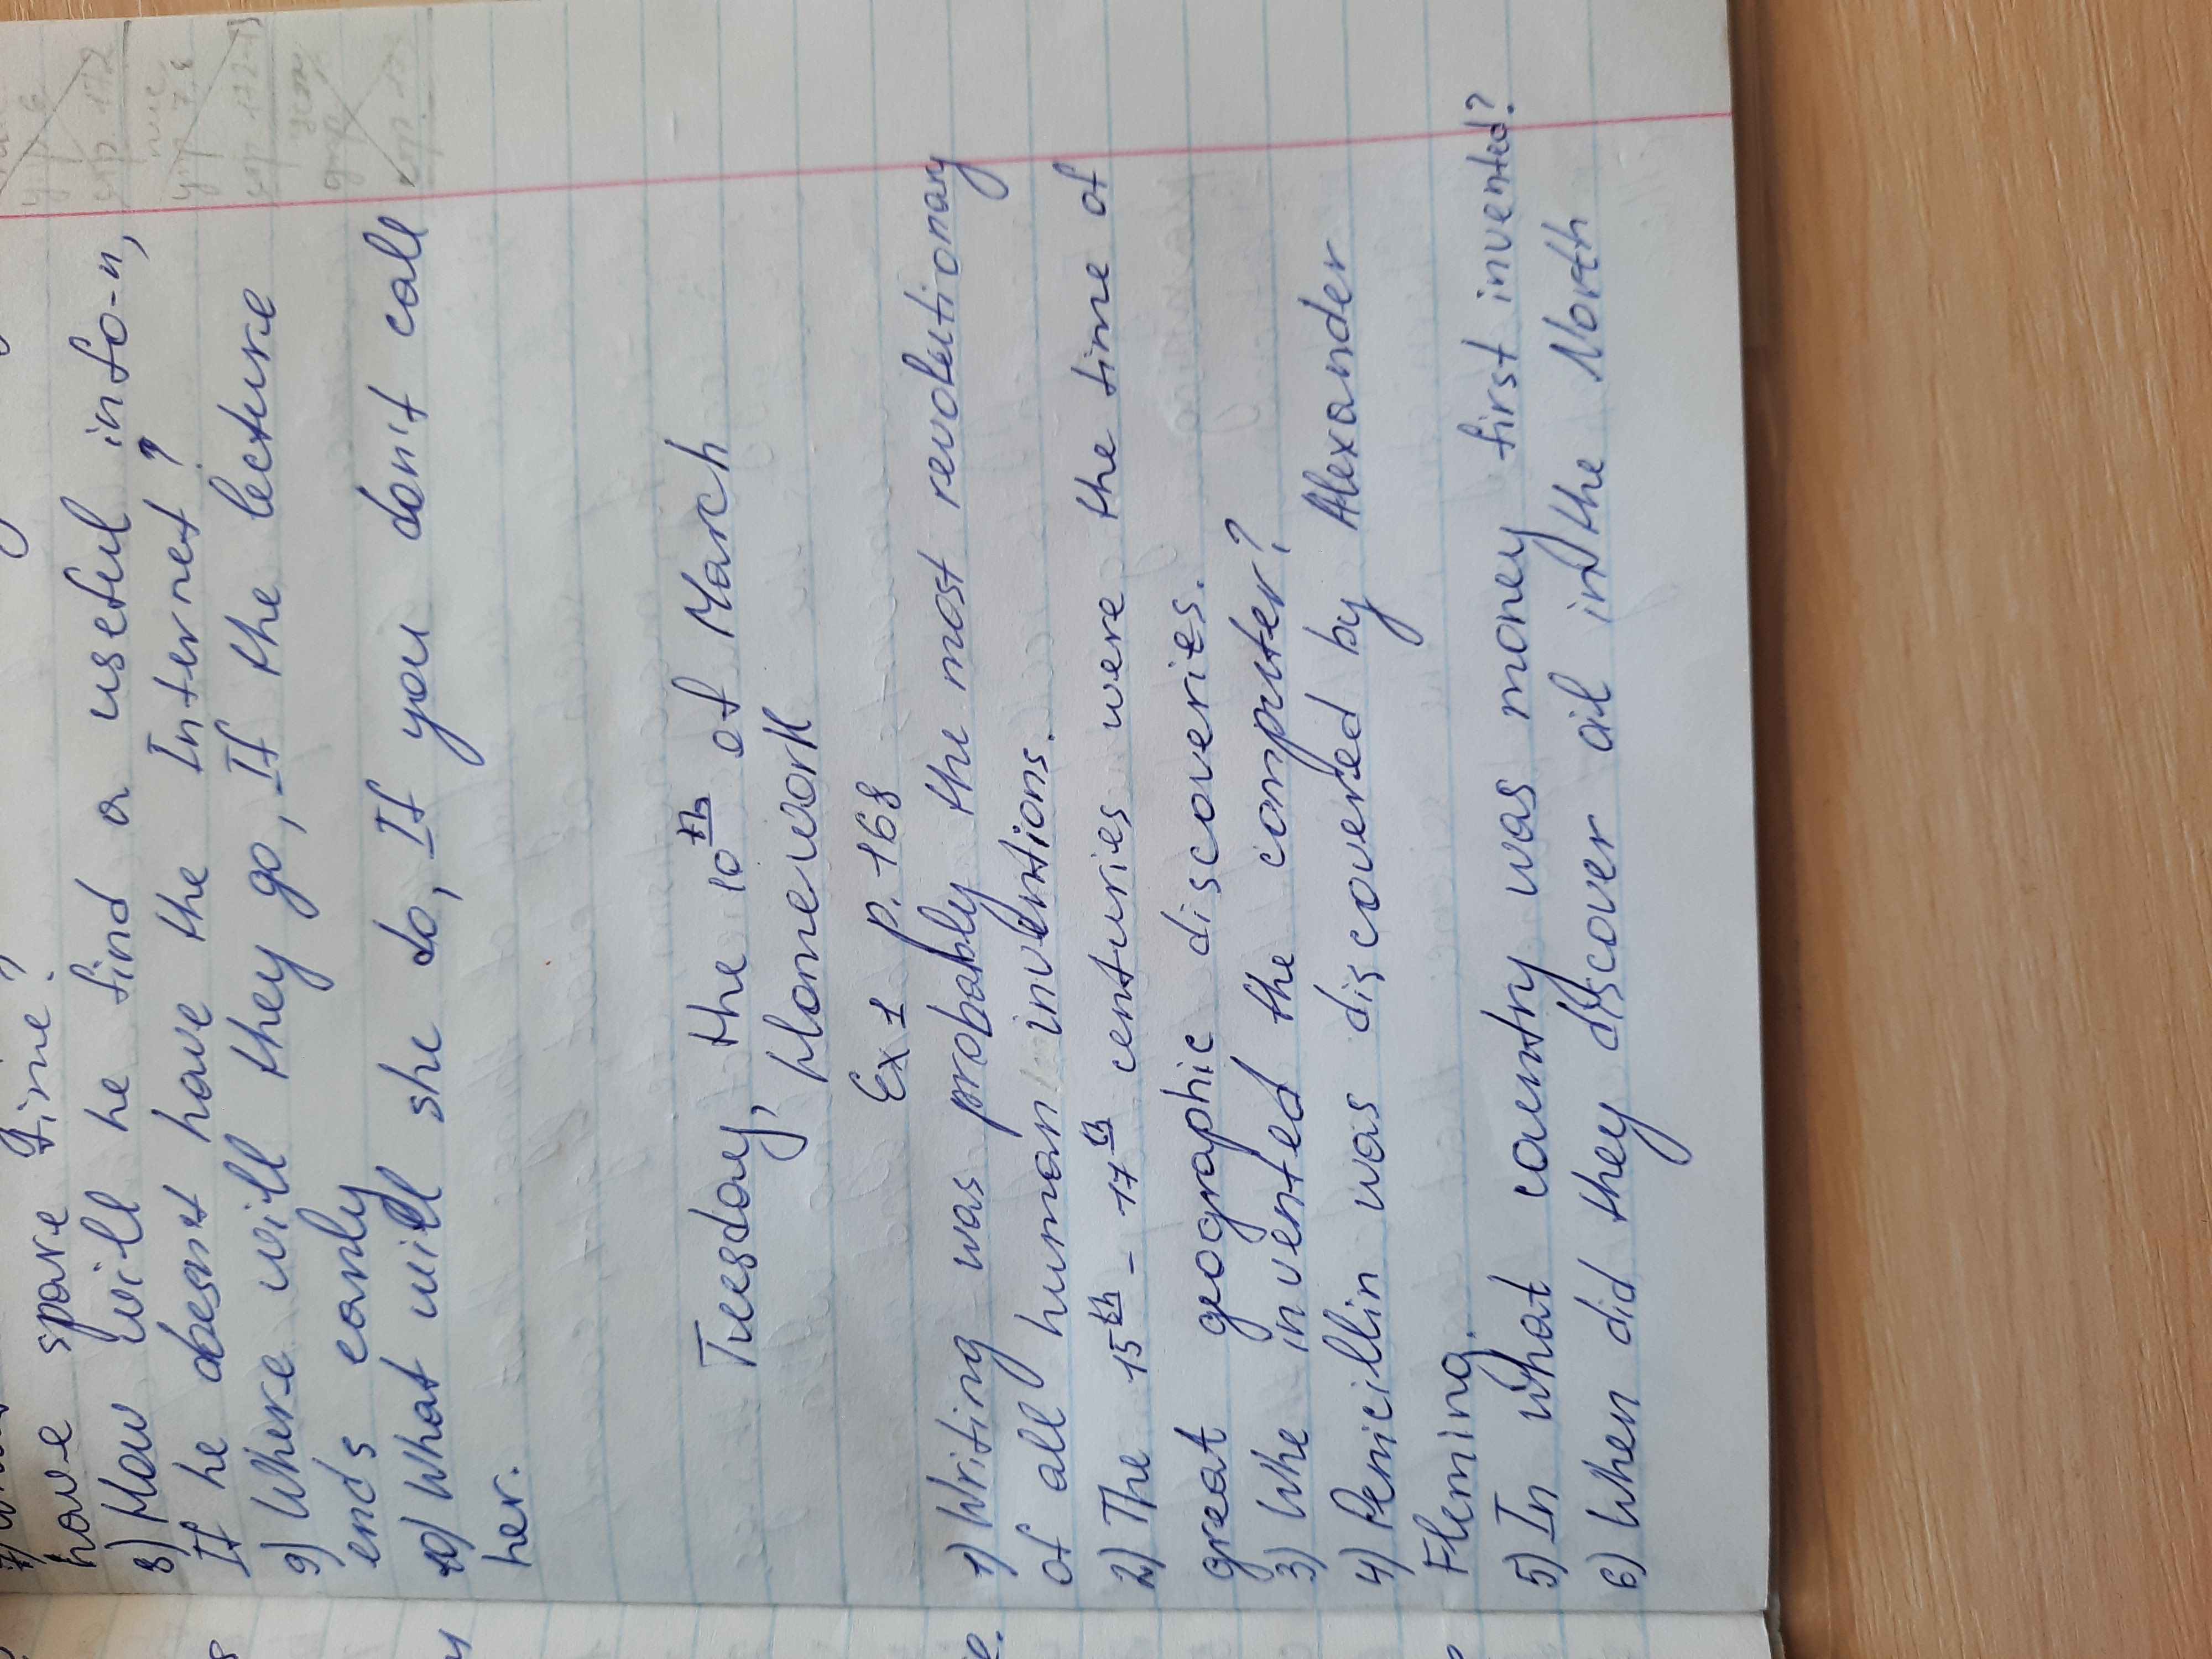 have spare time?
8) How will he find a useful info-n,
If he doesnt have the Internet?
9) Where will they go, If the lecture
ends early
10) What will she do, If you don't call
her.
Tuesday, the 10th of March
Homework
Ex 1 p. 168
1) Writing was probably the most revolutionary
of all human inventions.
2) The 15th - 17th centuries were the time of
great geographic discoveries.
3) Who invented the computer?
4) Penicillin was discovered by Alexander
Fleming.
5) In what country was money first invented?
6) When did they discover oil in the North